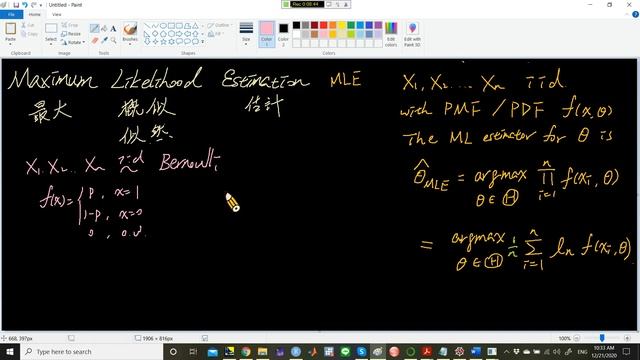 Rec 0:08:44
Untitled - Paint
File
Home
View
Paste
Select
Brushes
Shapes
Size
Color 1
Color 2
Edit colors
Edit with Paint 3D
Clipboard
Image
Tools
Shapes
Colors
Maximum Likelihood Estimation MLE
最大 概似 估計
似然
X₁, X₂ ... Xₙ iid Bernoulli
f(x) = { p, x=1
1-p, x=0
0, o.w.
X₁, X₂ ... Xₙ iid
with PMF / PDF f(x, θ)
The ML estimator for θ is
θ̂_MLE = argmax_{θ ∈ Ⓗ} ∏_{i=1}^{n} f(xᵢ, θ)
= argmax_{θ ∈ Ⓗ} 1/n ∑_{i=1}^{n} ln f(xᵢ, θ)
668, 397px
1906 × 816px
100%
Type here to search
ENG
10:33 AM
12/21/2020